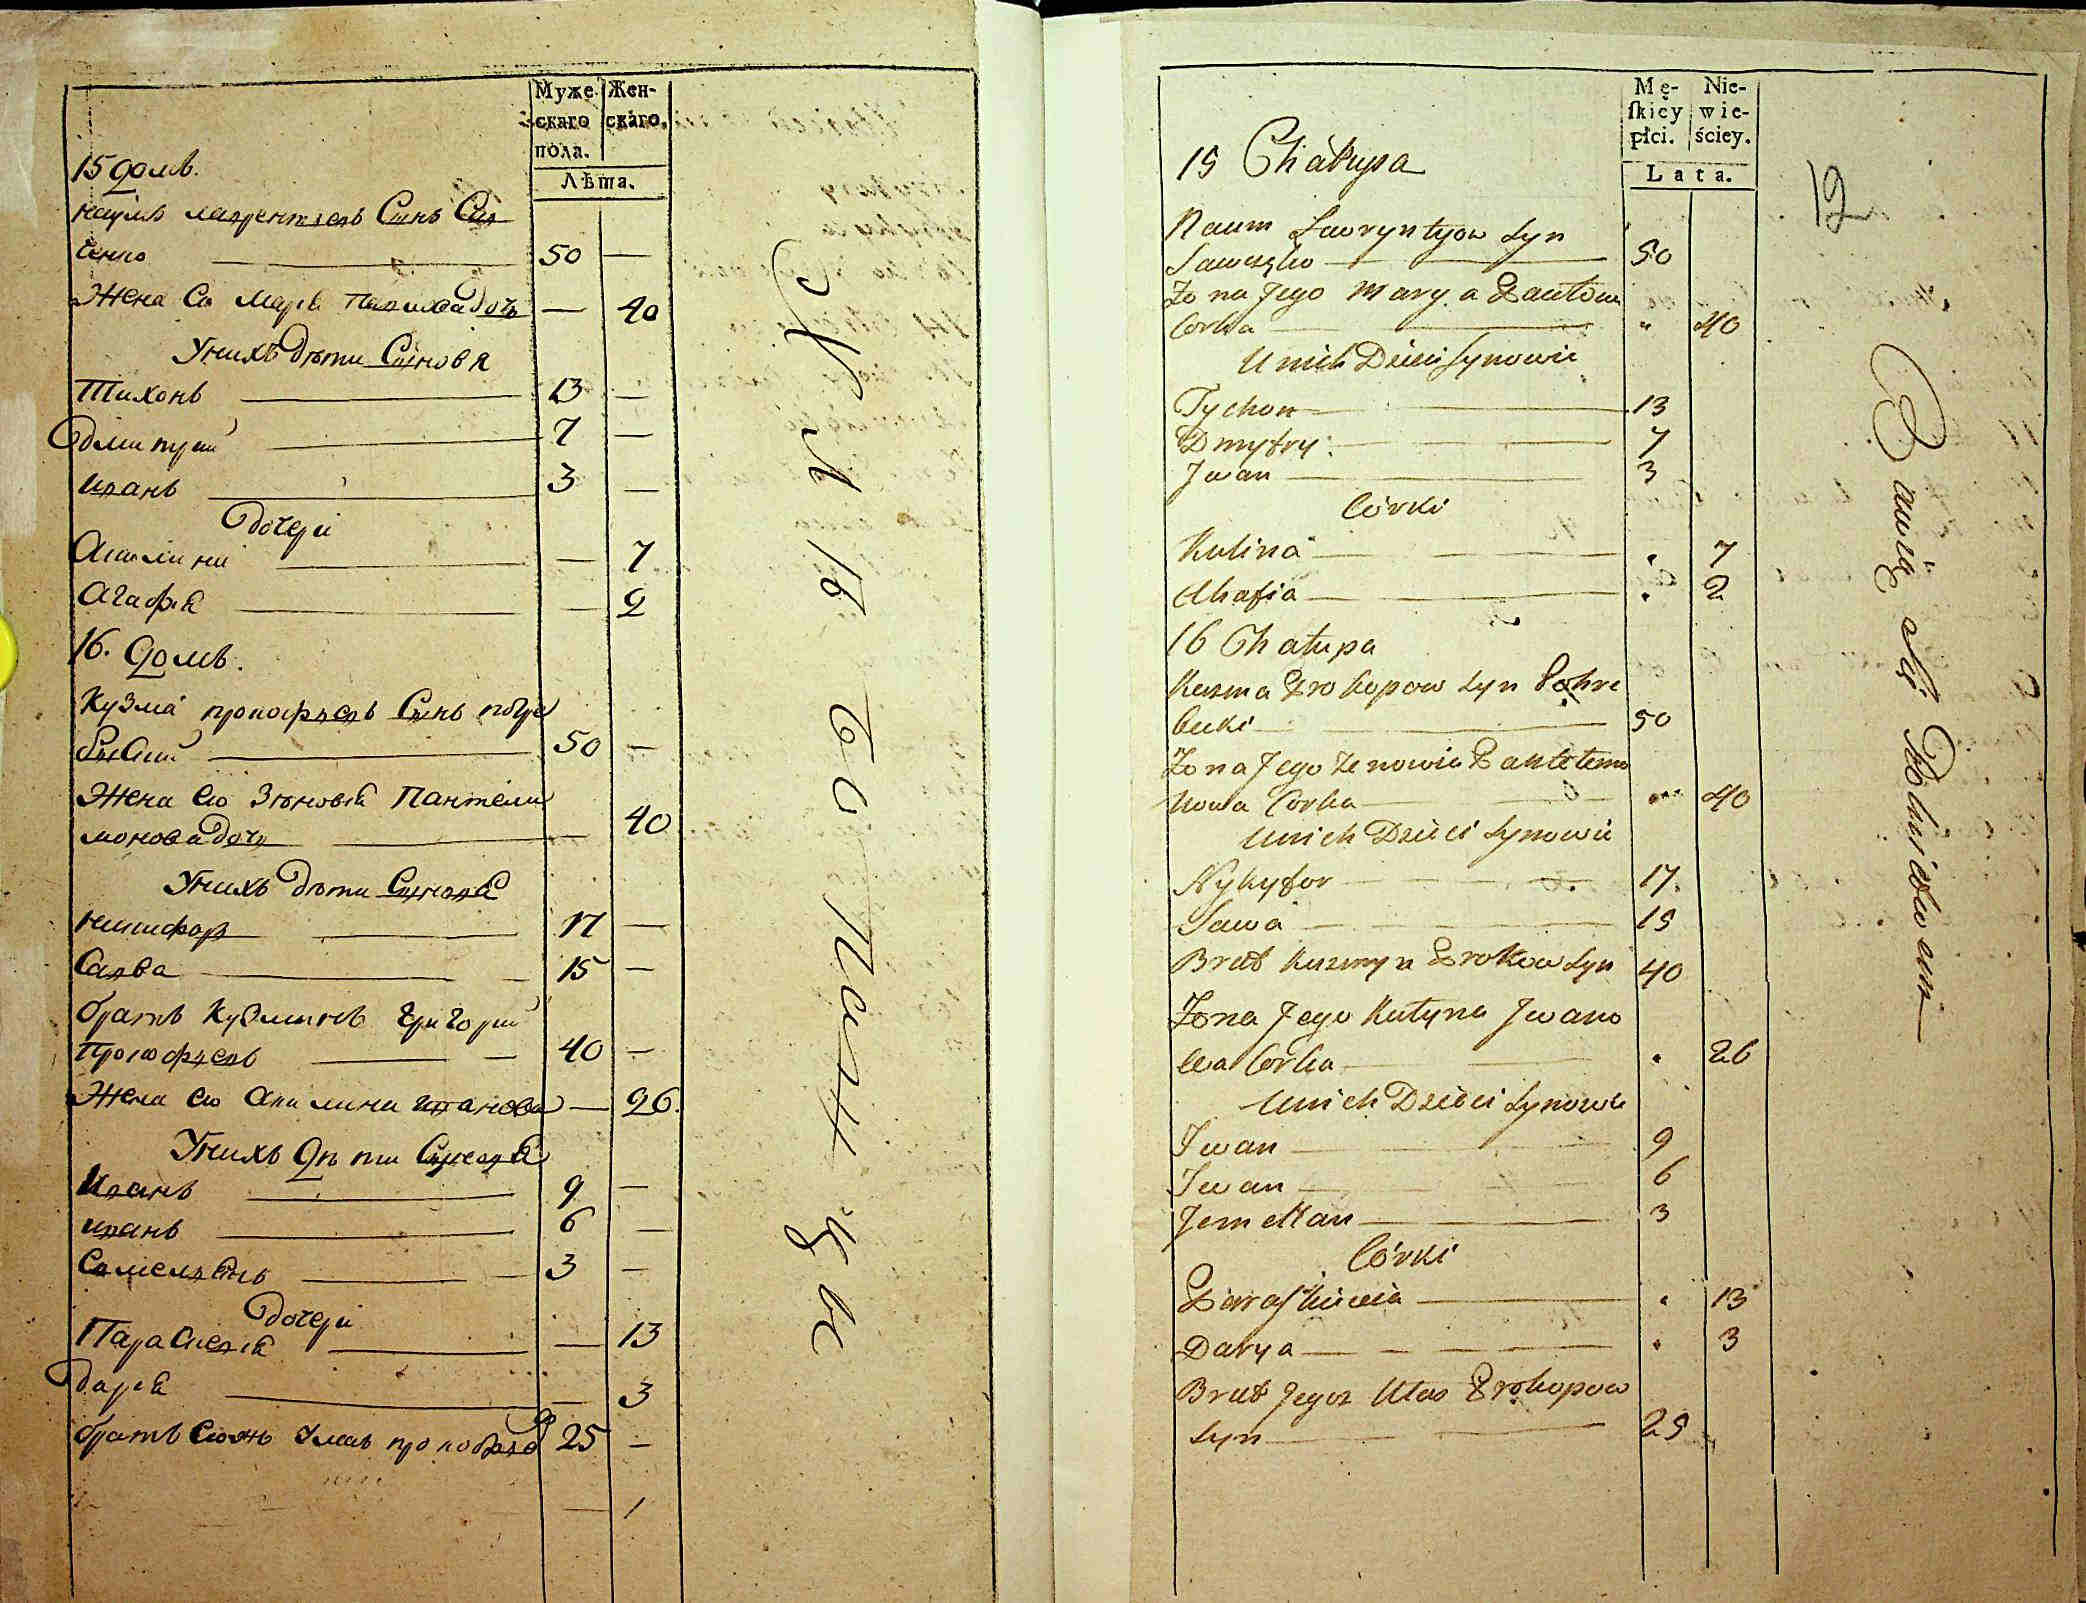 Муже-
скаго
пола.
Жен-
скаго.
Лѣта.
15 домъ.
наумъ лаврентіевъ Синъ Сав
ченко 50 —
Жена Єго Марія Павлова дочь — 40
У нихъ дѣти Синовя
Тихонъ 13 —
Дмитрий 7 —
иванъ 3 —
дочери
Акилина — 7
Агафія — 2
16. домъ.
Кузма прокофьевъ Синъ погре
бецкий 50 —
Жена его Зѣновія Пантели
монова дочь — 40
У нихъ дѣти Синовя
никифоръ 17 —
Савва 15 —
братъ Кузминъ григорий
Прокофьевъ 40 —
Жена его Акилина иванова — 26.
У нихъ дѣти Синовя
Иванъ 9 —
иванъ 6 —
Емельянъ 3 —
дочери
Параскевія — 13
дарія — 3
братъ Єгожъ прокофьевъ 25 —
Mę-
ſkiey
płci.
Nie-
wie-
ściey.
Lata.
12
15 Chałupa
Naum Lawryntyow Syn
Sawczęko 50
Żona Jego Marya Pawłowa
Corka " 40
U nich Dzieci Synowie
Tychon 13
Dmytry 7
Jwan 3
Córki
Kulina . 7
Ahafia . 2
16 Chałupa
Kuzma Prokopow Syn Pohre
becki 50
Żona Jego Zenowia Pantełemo
nowa Corka 40
U nich Dzieci Synowie
Nykyfor 17.
Sawa 15
Brat Kuzmyn Prokow Syn 40
Żona Jego Katyna Jwano
wa Corka . 26
U nich Dzieci Synowie
Iwan 9
Iwan 6
Jemelian 3
Córki
Paraſkiewia . 13
Darya . 3
Brat Jegoz Ułas Prokopow
Syn 25